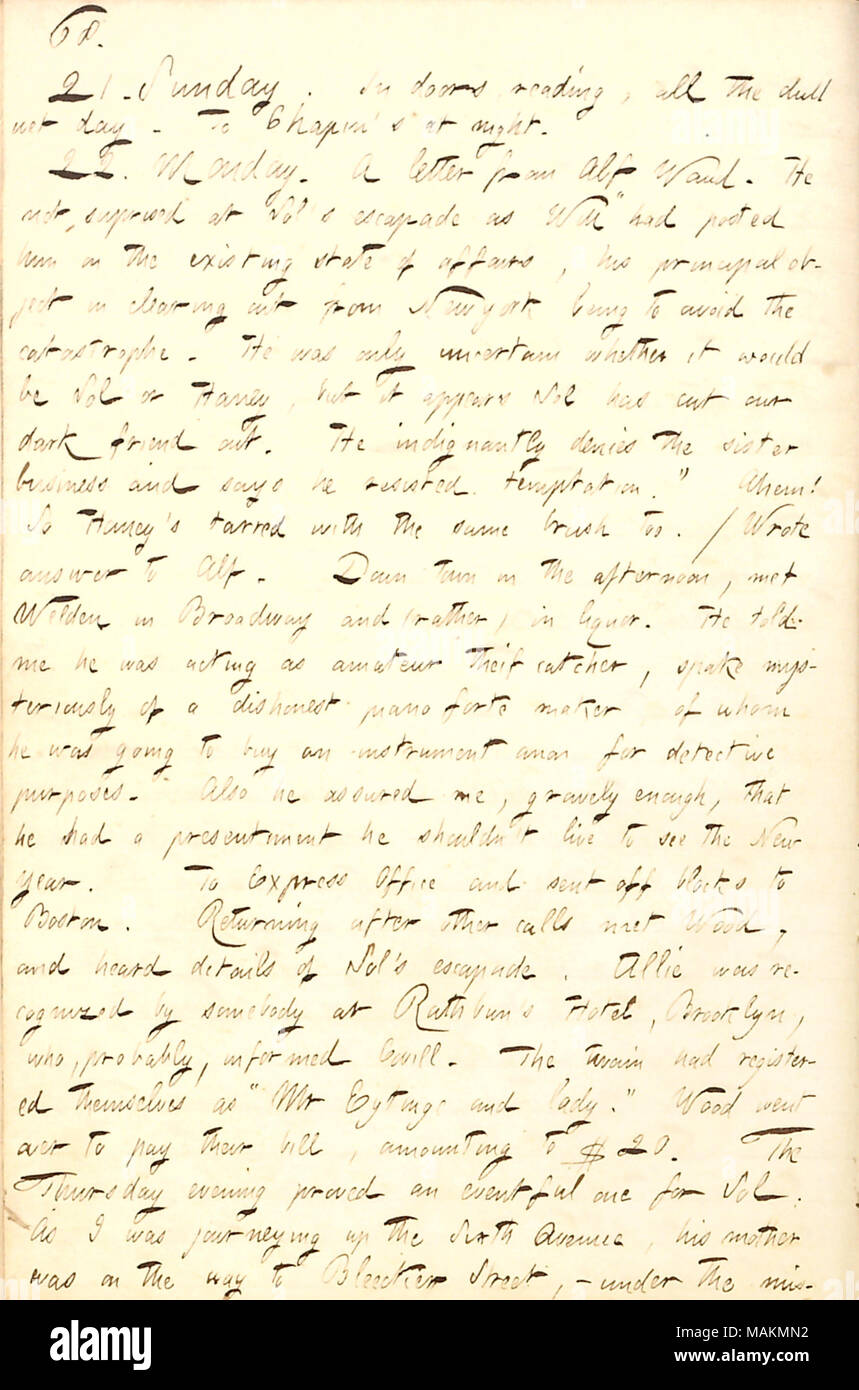 68.
21. Sunday. In doors reading, all the dull
wet day. To Chapin's at night.
22. Monday. A letter from Alf Waud. He
not surprised at Sol's escapade as Will" had posted
him on the existing state of affairs, his principal ob-
ject in clearing out from New York being to avoid the
catastrophe. He was only uncertain whether it would
be Sol or Haney, but it appears Sol has cut our
dark friend out. He indignantly denies the sister
business and says he resisted temptation." Ahem!
So Haney's tarred with the same brush too. / Wrote
answer to Alf. Down town in the afternoon, met
Welden in Broadway and (rather) in liquor. He told
me he was acting as amateur theif catcher, spake mys-
teriously of a dishonest piano forte maker of whom
he was going to buy an instrument anon for detective
purposes. Also he assured me, gravely enough, that
he had a presentiment he shouldn't live to see the New
Year. To Express Office and sent off blocks to
Boston. Returning after other calls met Wood,
and heard details of Sol's escapade. Allie was re-
cognized by somebody at Rathbun's Hotel, Brooklyn,
who, probably, informed Ewill. The twain had register-
ed themselves as "Mr Eytinge and lady." Wood went
over to pay their bill, amounting to $20. The
Thursday evening proved an eventful one for Sol.
As I was journeying up the Sixth Avenue, his mother
was on the way to Bleecker Street, – under the mis-
alamy
Image ID: MAKMN2
www.alamy.com